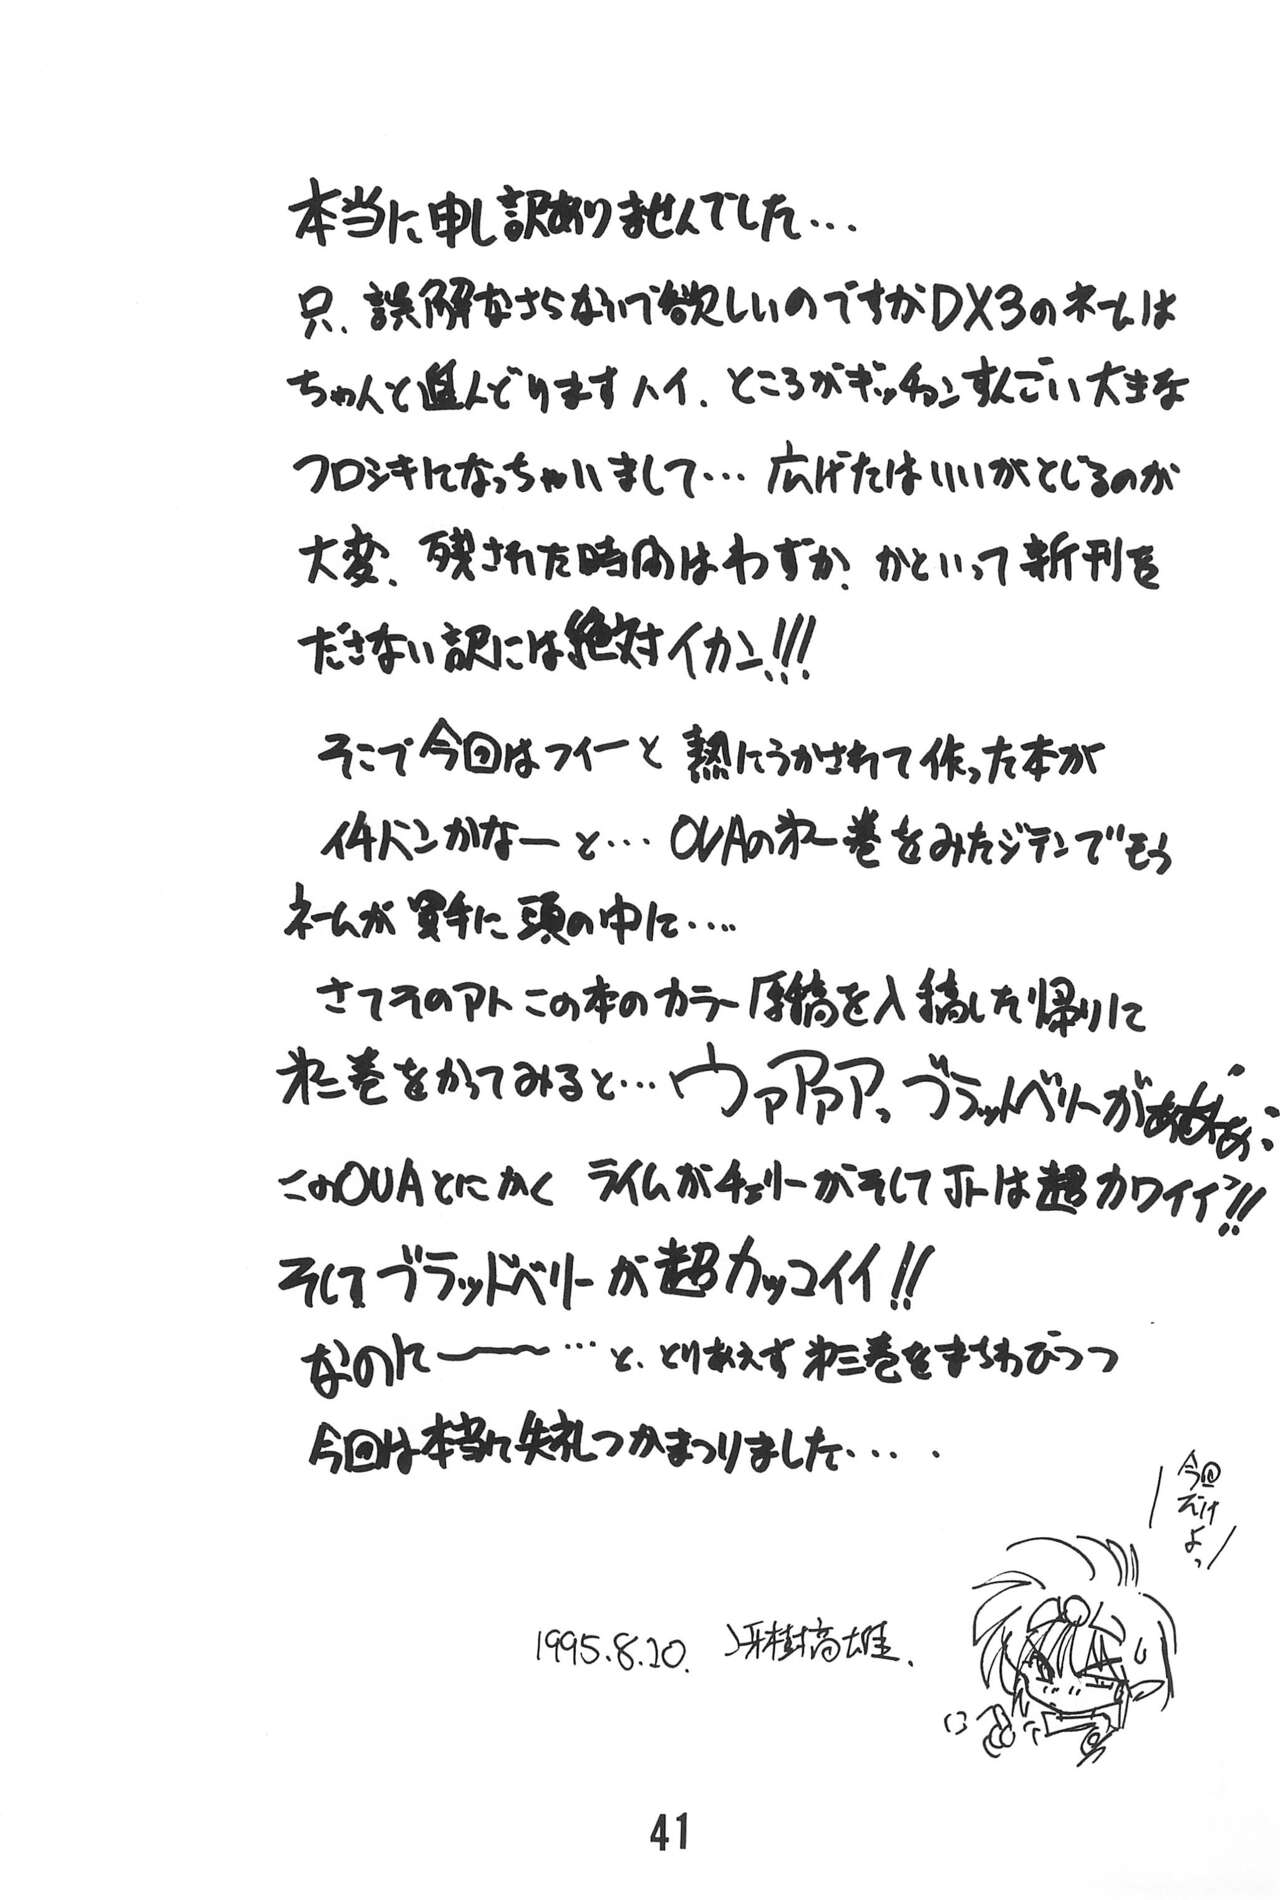 本当に申し訳ありませんでした…
只、誤解なさらないで欲しいのですがDX3のネームは
ちゃんと進んどりますハイ、ところがギッチョンすんごい大きな
フロシキになっちゃいまして…広げたはいいがとじるのが
大変、残された時間はわずか、かといって新刊を
ださない訳には絶対イカン!!!
そこで今回はフイーと熱にうかされて作った本が
イチバンかなーと…OVAの第一巻をみたジテンでもう
ネームが勝手に頭の中に….
さてそのアトこの本のカラー原稿を入稿した帰りに
第二巻をかってみると…ウァアァアっ、ブラッドベリーがぁぁぁぁ
このOVAとにかくライムがチェリーがそしてJrは超カワイイ!!
そしてブラッドベリーが超カッコイイ!!
なのに〜〜…と、とりあえず第三巻をまちわびつつ
今回は本当に失礼つかまつりました….
今回
だけ
よっ
1995.8.20. 冴樹高雄.
41